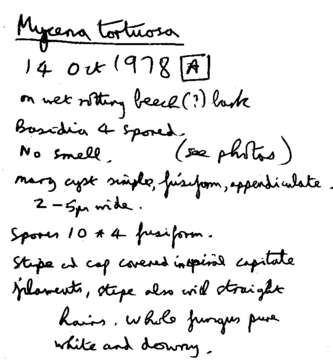 Mycena tortuosa
14 Oct 1978 A
on wet rotting beech(?) bark
Basidia 4 spored.
No smell. (see photos)
marg cyst simple, fusiform, appendiculate.
2-5μ wide.
Spores 10 * 4 fusiform.
Stipe & cap covered in spiral capitate
filaments, stipe also with straight
hairs. Whole fungus pure
white and downy.